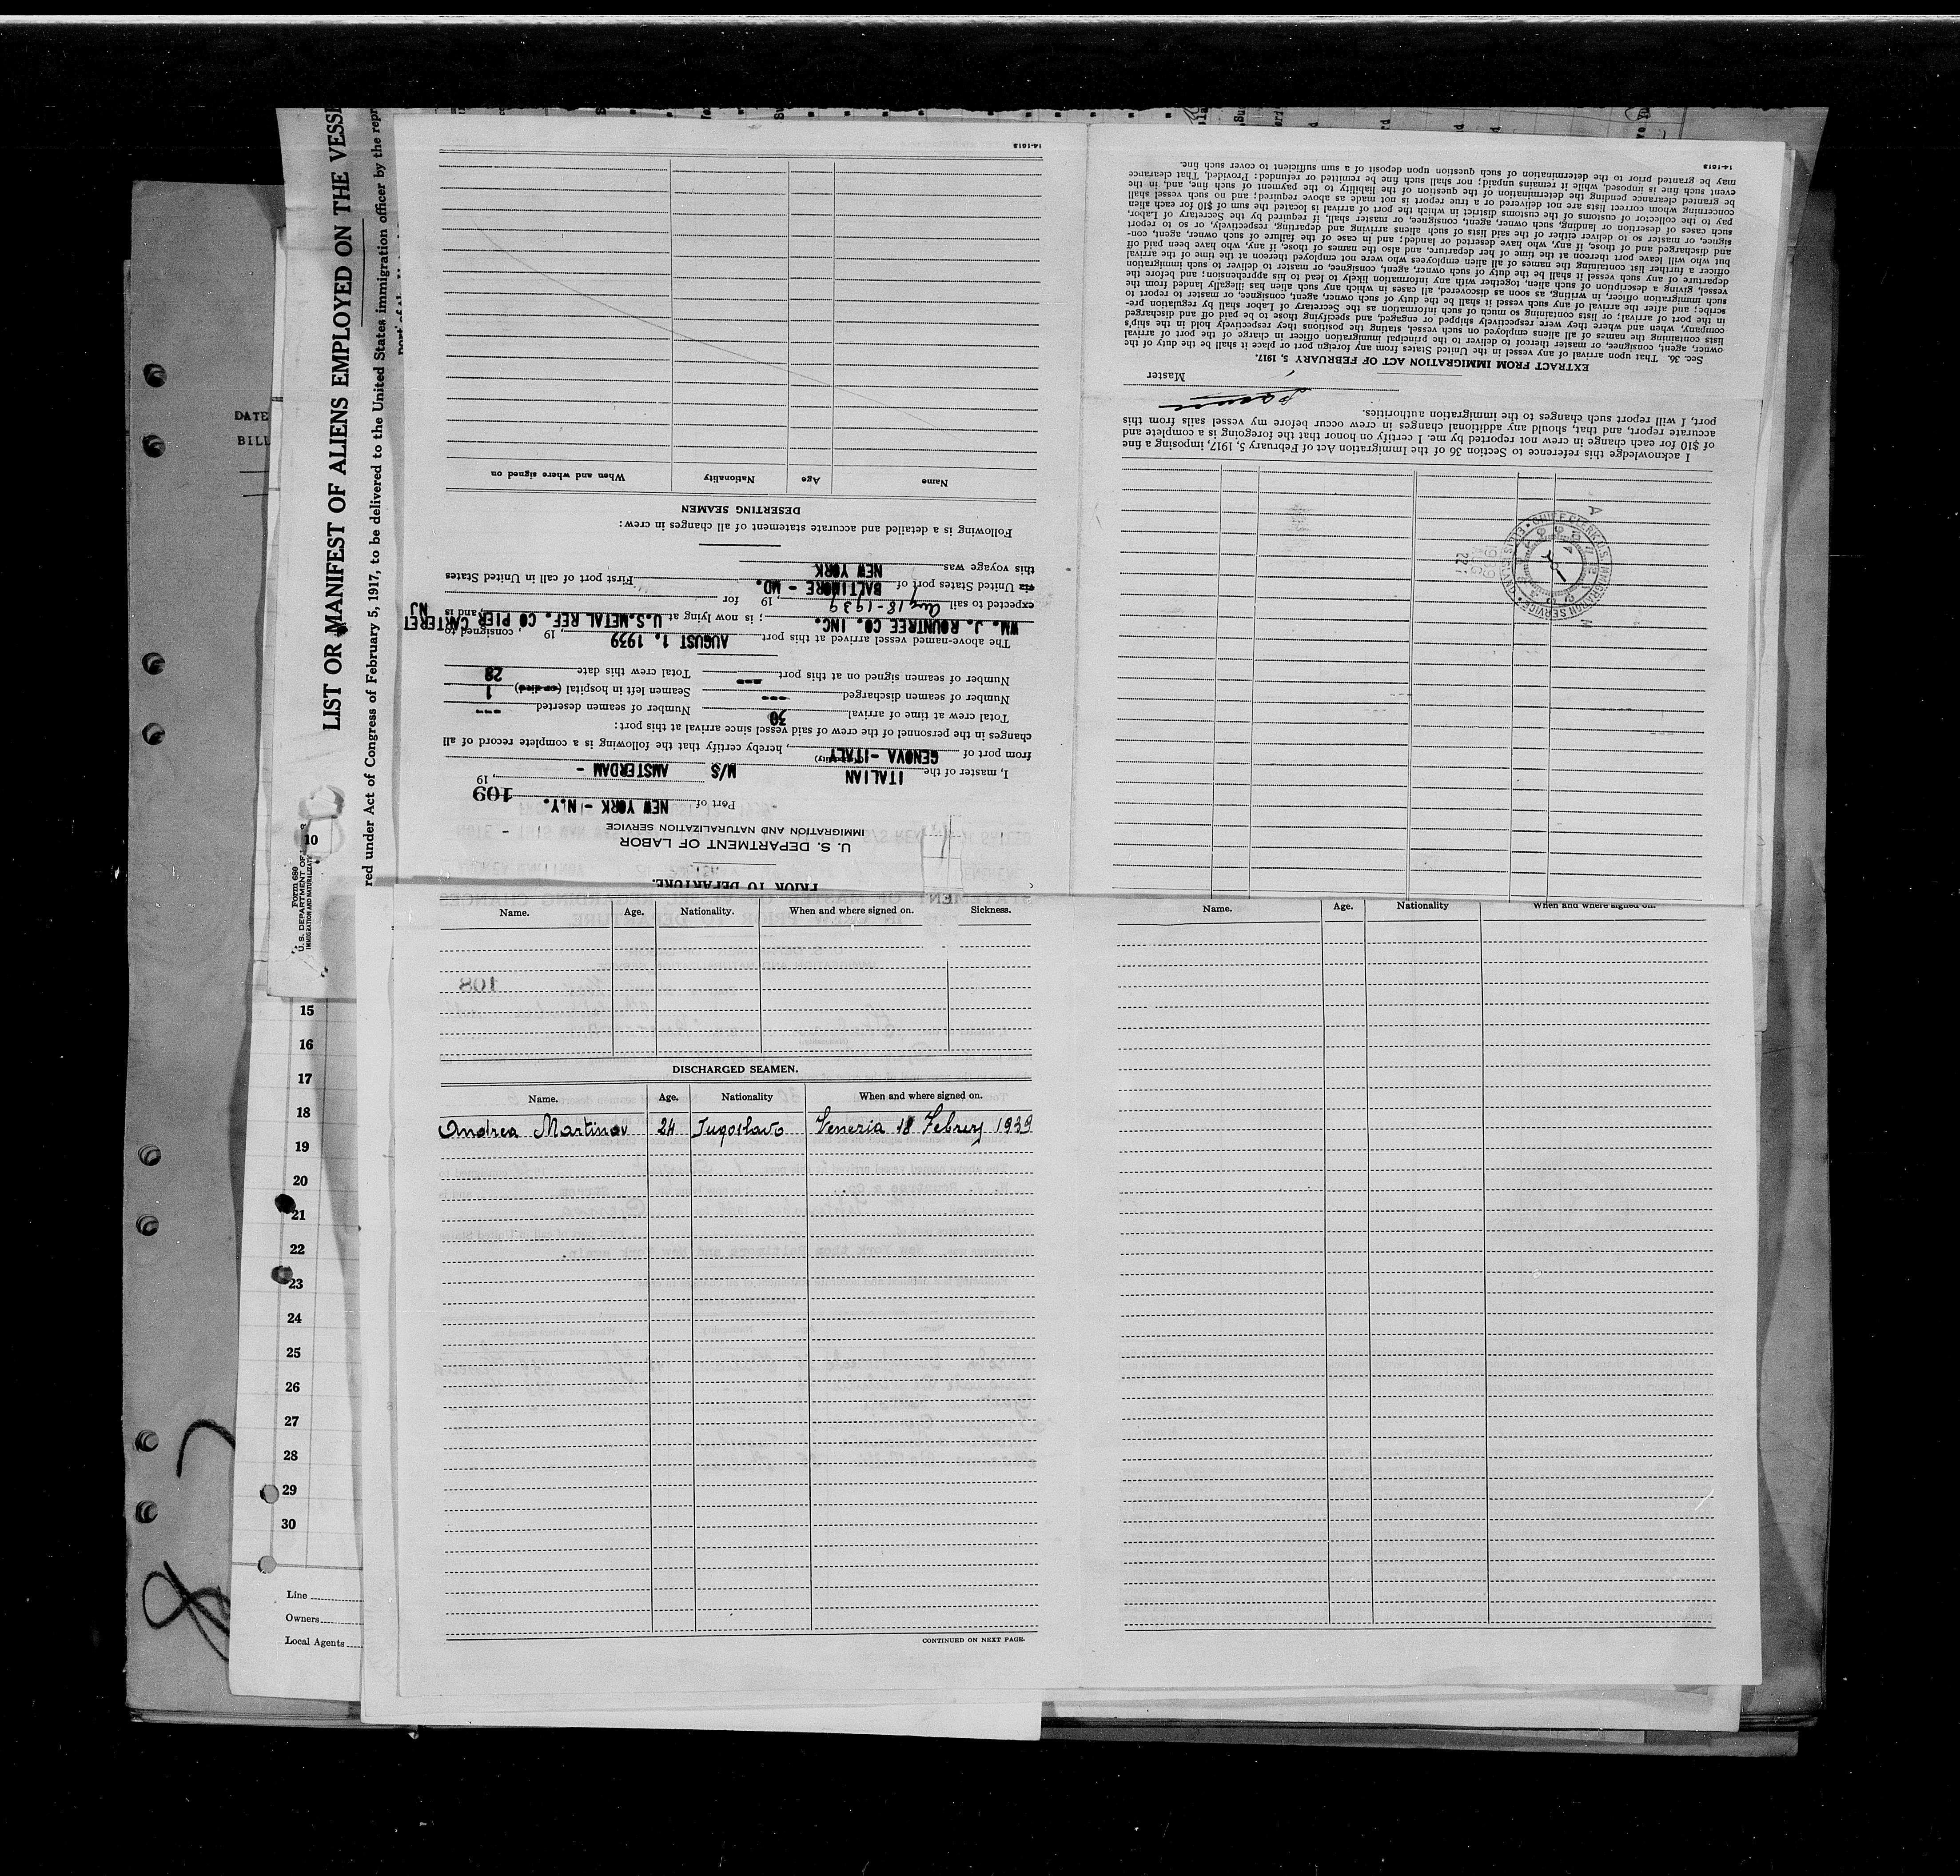 LIST OR MANIFEST OF ALIENS EMPLOYED ON THE VESSE
red under Act of Congress of February 5, 1917, to be delivered to the United States immigration officer by the repr
Form 680
U. S. DEPARTMENT OF
IMMIGRATION AND NATURALIZAT
DATE
BILL
10
15
16
17
18
19
20
21
22
23
24
25
26
27
28
29
30
Line
Owners
Local Agents
PRIOR TO DEPARTURE.
U. S. DEPARTMENT OF LABOR
IMMIGRATION AND NATURALIZATION SERVICE
109
Port of NEW YORK - N.Y. , 19
I, master of the ITALIAN M/S AMSTERDAM -
(Nationality)
from port of GENOVA - ITALY , hereby certify that the following is a complete record of all
changes in the personnel of the crew of said vessel since arrival at this port:
Total crew at time of arrival 30 Number of seamen deserted ---
Number of seamen discharged --- Seamen left in hospital (or died) 1
Number of seamen signed on at this port --- Total crew this date 28
The above-named vessel arrived at this port AUGUST 1. 1939 , 19 , consigned to
WM. J. ROUNTREE CO. INC. ; is now lying at U.S.METAL REF. CO PIER CARTERET NJ , and is
expected to sail Aug 18-1939 , 19 for
via United States port of BALTIMORE - MD. First port of call in United States
this voyage was NEW YORK
Following is a detailed and accurate statement of all changes in crew:
DESERTING SEAMEN
Name Age Nationality When and where signed on
14-1613
I acknowledge this reference to Section 36 of the Immigration Act of February 5, 1917, imposing a fine
of $10 for each change in crew not reported by me. I certify on honor that the foregoing is a complete and
accurate report, and that, should any additional changes in crew occur before my vessel sails from this
port, I will report such changes to the immigration authorities.
Master
EXTRACT FROM IMMIGRATION ACT OF FEBRUARY 5, 1917.
Sec. 36. That upon arrival of any vessel in the United States from any foreign port or place it shall be the duty of the
owner, agent, consignee, or master thereof to deliver to the principal immigration officer in charge of the port of arrival
lists containing the names of all aliens employed on such vessel, stating the positions they respectively hold in the ship's
company, when and where they were respectively shipped or engaged, and specifying those to be paid off and discharged
in the port of arrival; or lists containing so much of such information as the Secretary of Labor shall by regulation pre-
scribe; and after the arrival of any such vessel it shall be the duty of such owner, agent, consignee, or master to report to
such immigration officer, in writing, as soon as discovered, all cases in which any such alien has illegally landed from the
vessel, giving a description of such alien, together with any information likely to lead to his apprehension; and before the
departure of any such vessel it shall be the duty of such owner, agent, consignee, or master to deliver to such immigration
officer a further list containing the names of all alien employees who were not employed thereon at the time of the arrival
but who will leave port thereon at the time of her departure, and also the names of those, if any, who have been paid off
and discharged and of those, if any, who have deserted or landed; and in case of the failure of such owner, agent, con-
signee, or master so to deliver either of the said lists of such aliens arriving and departing, respectively, or so to report
such cases of desertion or landing, such owner, agent, consignee, or master, shall, if required by the Secretary of Labor,
pay to the collector of customs of the customs district in which the port of arrival is located the sum of $10 for each alien
concerning whom correct lists are not delivered or a true report is not made as above required; and no such vessel shall
be granted clearance pending the determination of the question of the liability to the payment of such fine, and, in the
event such fine is imposed, while it remains unpaid; nor shall such fine be remitted or refunded: Provided, That clearance
may be granted prior to the determination of such question upon deposit of a sum sufficient to cover such fine.
14-1613
Name. Age. Nationality. When and where signed on. Sickness.
108
DISCHARGED SEAMEN.
Name. Age. Nationality When and where signed on.
Andrea Martinov 24 Jugoslavo Venezia 18 Februry 1939
CONTINUED ON NEXT PAGE.
Name. Age. Nationality When and where signed on.